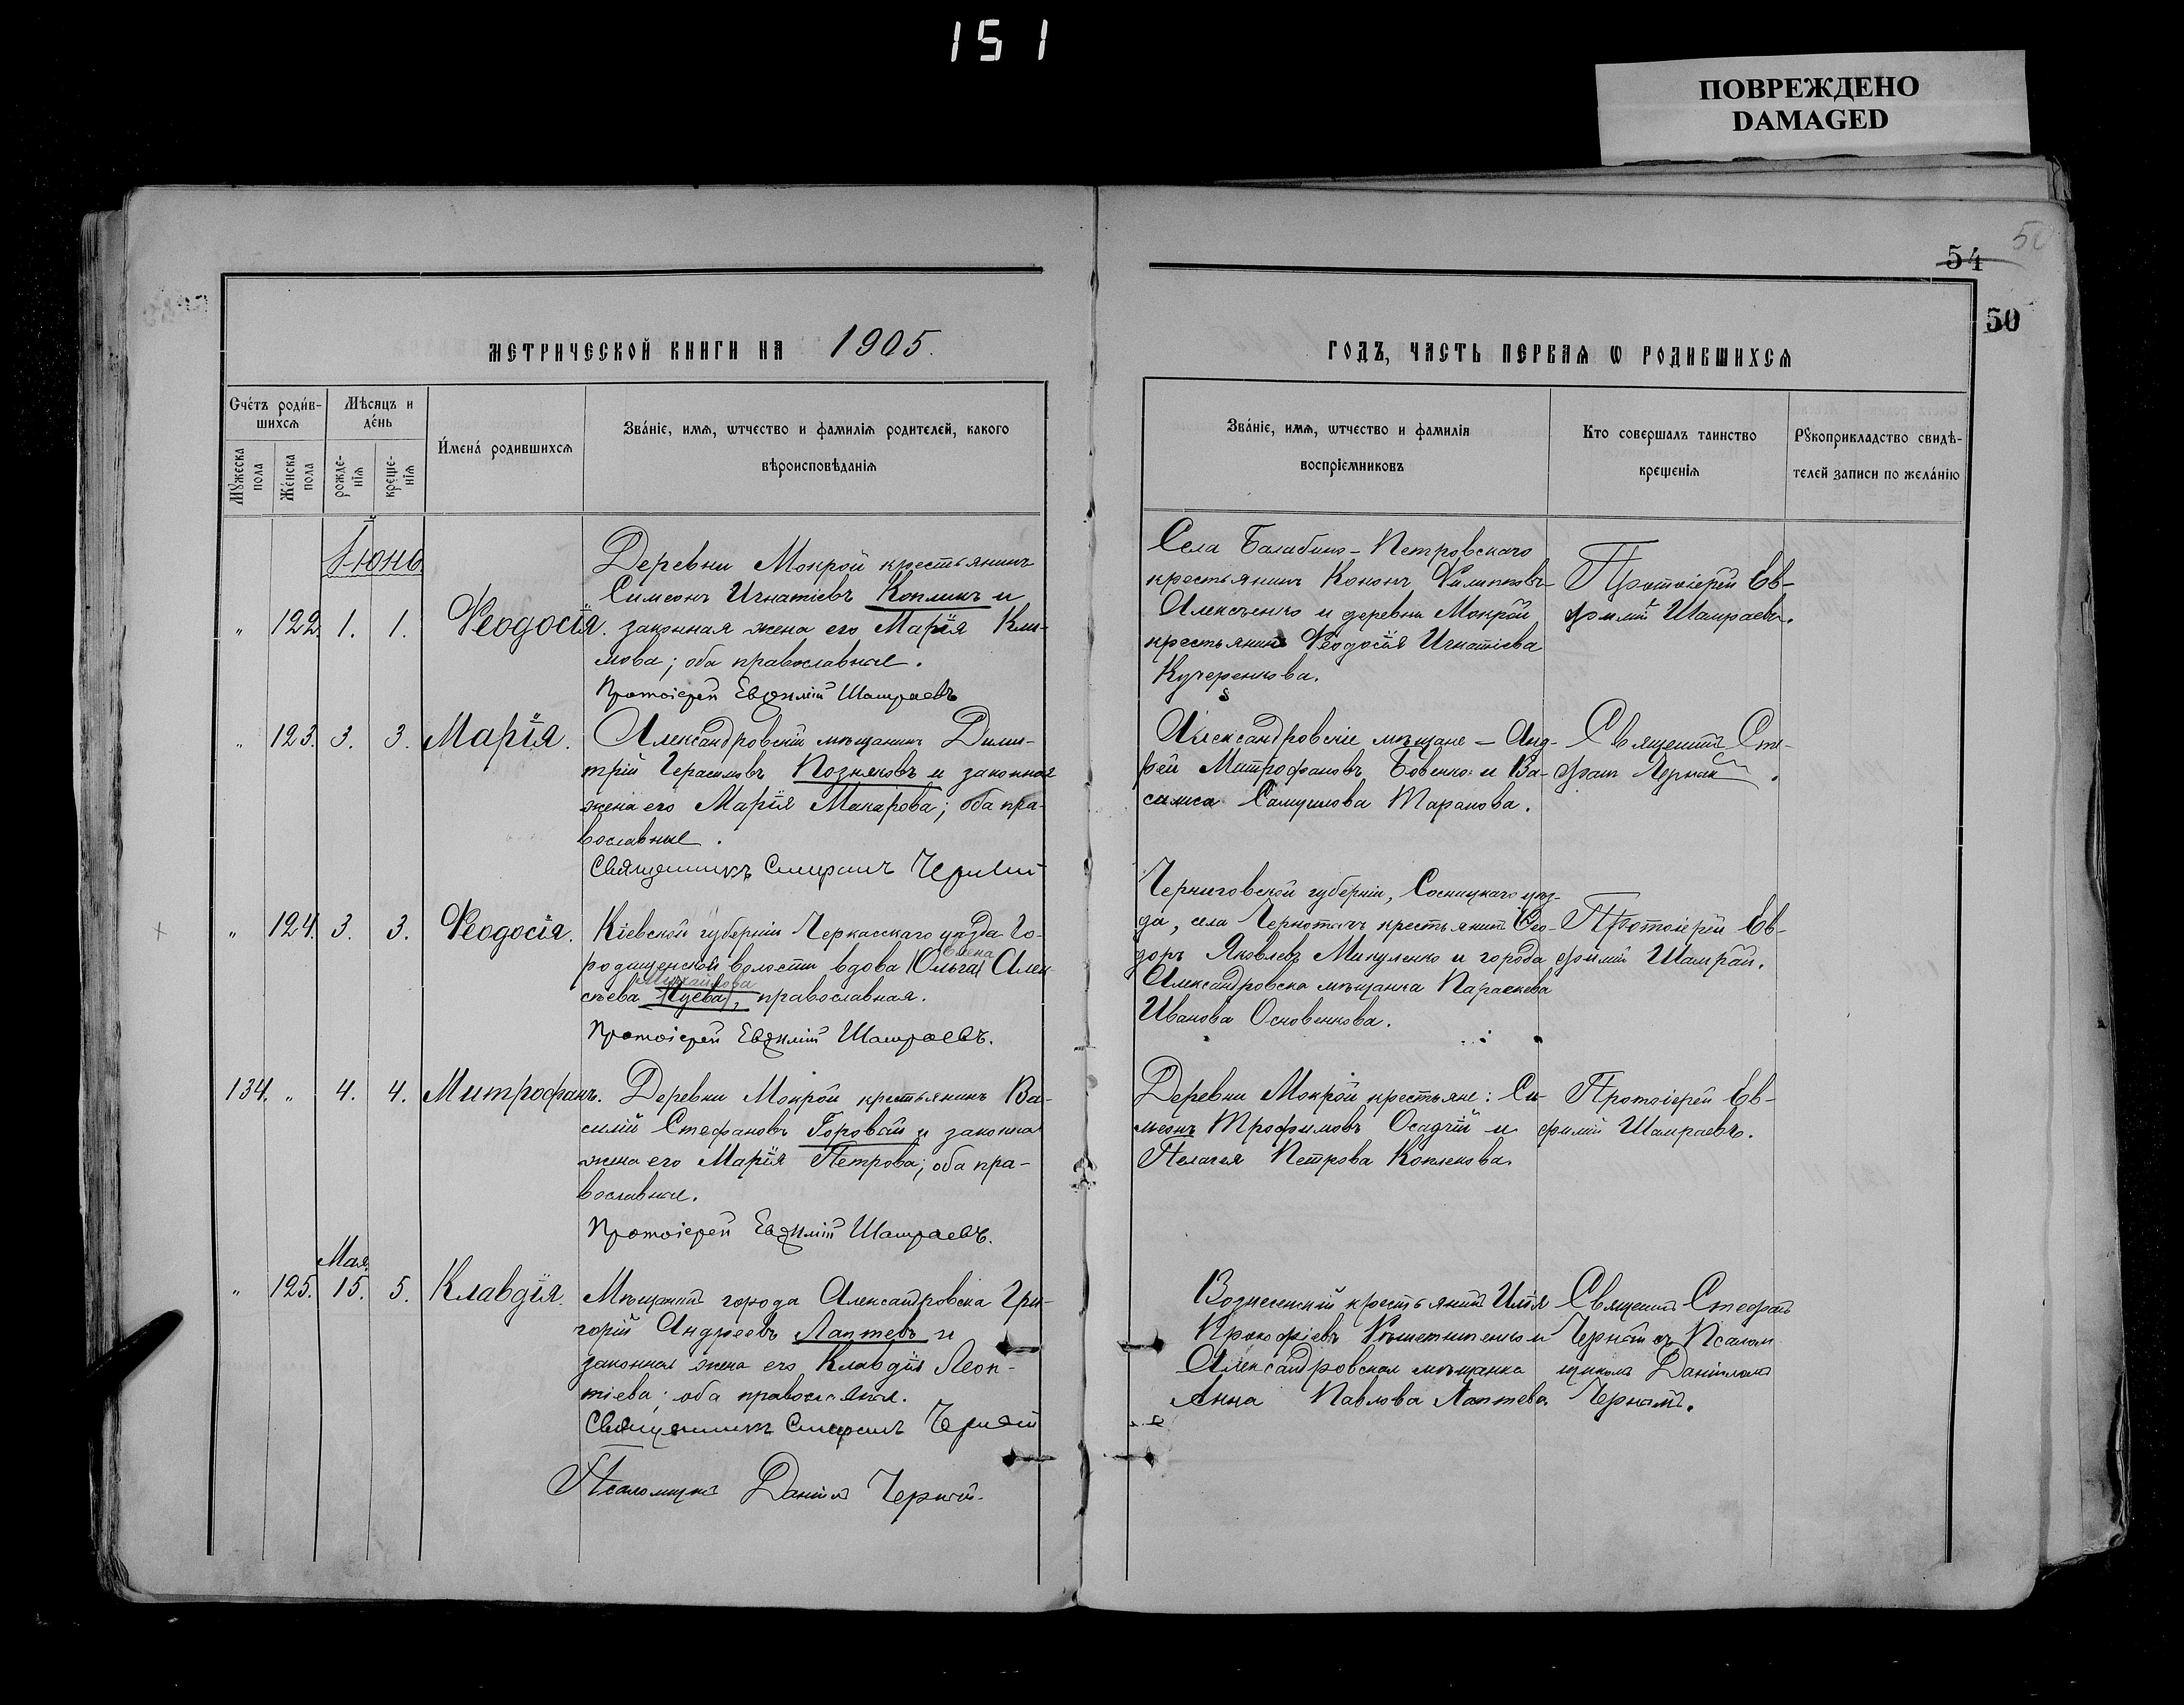 151
ПОВРЕЖДЕНО
DAMAGED
54
50
МЕТРИЧЕСКОЙ КНИГИ НА 1905.
ГОДЪ, ЧАСТЬ ПЕРВАѦ Ѡ РОДИВШИХСѦ
Счéтъ роди́в-
шихсѧ
Мѣсяцъ и
дéнь
Мꙋжеска
пола
Же́нска
пола
рожде-
нїѧ
креще-
нїѧ
И́мена́ родившихсѧ
Зва́нїе, имѧ, ѡтчество и фамилїѧ родителей, какого
вѣроисповѣданїѧ
Зва́нїе, имѧ, ѡтчество и фамилїѧ
воспрїемниковъ
Кто совершалъ таинство
крещенїѧ
Рꙋкоприкладство свидѣ-
телей записи по жела́нїю
Іюнь
" 122. 1. 1. Ѳеодосія.
Деревни Мокрой крестьянинъ
Симеонъ Игнатіевъ Коплинъ и
законная жена его Марія Кли-
мова; оба православные.
Протоіерей Евѳимій Шамраевъ
Села Балабино-Петровскаго
крестьянинъ Кононъ Филипповъ
Алексѣенко и деревни Мокрой
Ѳеодосія Игнатіева
Кучеренкова.
Протоіерей Ев-
фимій Шамраевъ.
" 123. 3. 3. Марія.
Александровскій мѣщанинъ Дими-
трій Герасимовъ Позняковъ и законная
жена его Марія Макарова; оба пра-
вославные.
Священникъ Стефанъ Черный
Александровскіе мѣщане - Анд-
рей Митрофановъ Бовенко и Ва-
силиса Самуилова Таранова.
Священникъ Сте-
фанъ Черный.
" 124. 3. 3. Ѳеодосія.
Кіевской губерніи Черкасскаго уѣзда Го-
родищенской волости вдова (Ольга) Алек
Елена
сѣева православная.
Михайлова
Протоіерей Евѳимій Шамраевъ.
Черниговской губерніи, Сосницкаго уѣз-
да, села крестьянинъ Ѳео-
доръ Яковлевъ Микуленко и города
Александровска мѣщанка Параскева
Иванова Основенкова.
Протоіерей Ев-
фимій Шамрай.
134. " 4. 4. Митрофанъ.
Деревни Мокрой крестьянинъ Ва-
силій Стефановъ Горовый и законная
жена его Марія Петрова; оба пра-
вославные.
Протоіерей Евѳимій Шамраевъ.
Деревни Мокрой крестьяне: Си-
меонъ Трофимовъ Осадчій и
Пелагея Петрова Коплекова.
Протоіерей Ев-
фимій Шамраевъ.
Мая
" 125. 15. 5. Клавдія.
Мѣщанинъ города Александровска Гри-
горій Андреевъ Лаптевъ и
законная жена его Клавдія Леон-
тіева; оба православные.
Священникъ Стефанъ Черный
Псаломщикъ Даніилъ Черный.
Вознесенскій крестьянинъ Илія
Прокофіевъ и
Александровская мѣщанка
Анна Павлова Лаптева.
Священникъ Стефанъ
Черный съ Псалом
щикомъ Даніиломъ
Чернымъ.